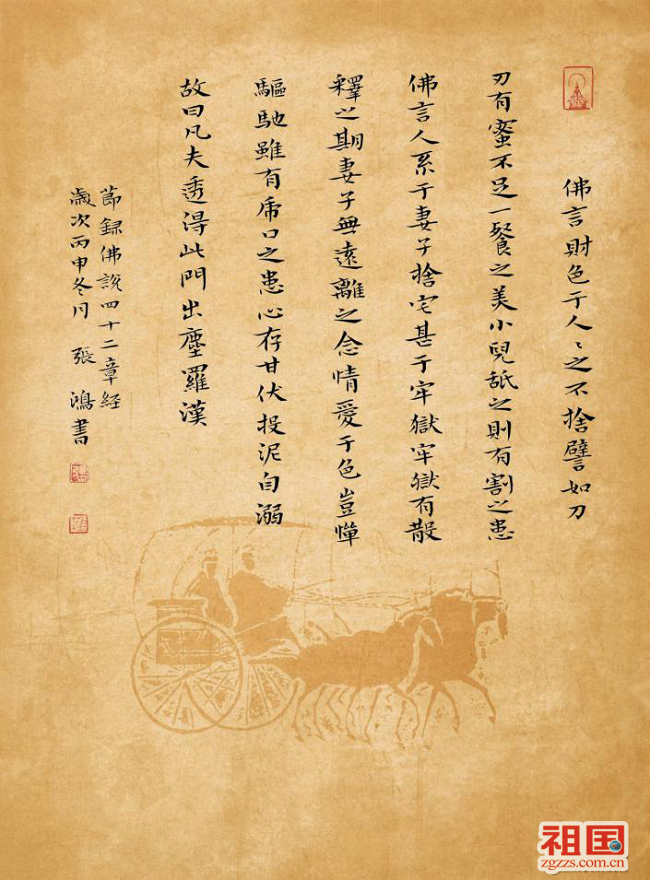 佛言財色于人〻之不捨譬如刀
刃有蜜不足一餐之美小兒舐之則有割之患
佛言人系于妻子捨宅甚于牢獄牢獄有散
釋之期妻子無遠離之念情愛于色豈憚
驅馳雖有虎口之患心存甘伏投泥自溺
故曰凡夫透得此門出塵羅漢
節録佛説四十二章经
歲次丙申冬月 張鴻書
祖国
zgzzs.com.cn